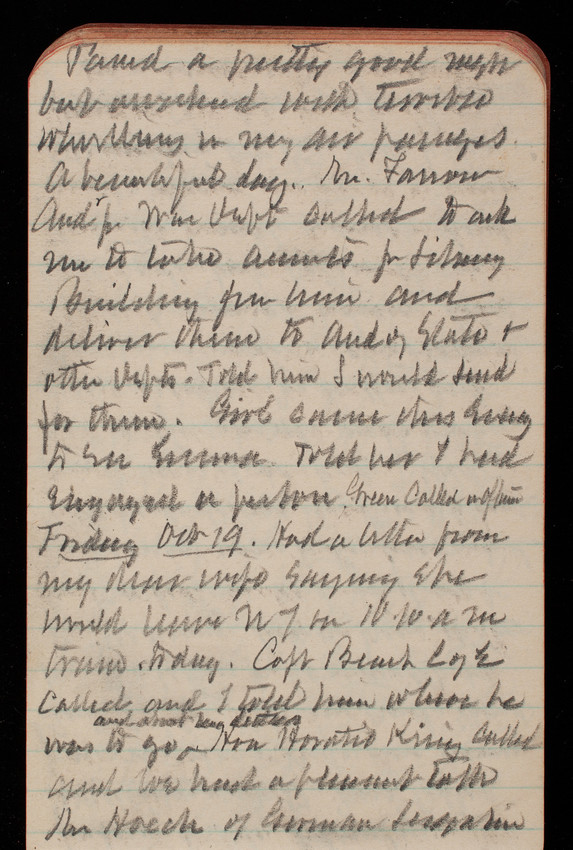 Passed a pretty good night
but awakened with terrible
whistlings in my air passages.
A beautiful day. Mr. Farrow
Audr for War Dept called to ask
me to take accounts for Library
Building from him and
deliver them to Aud of State &
other Depts. Told him I would send
for them. Girl came this Eveng
to see Emma. Told her I had
engaged a person. Green called
Friday Oct 19. Had a letter from
my dear wife saying she
would leave N Y on 10 10 a m
train today. Capt Beach C of E
called and I told him where he
and about my
was to go. Hon Horatio King called
and we had a pleasant talk
Mr Hoech of German